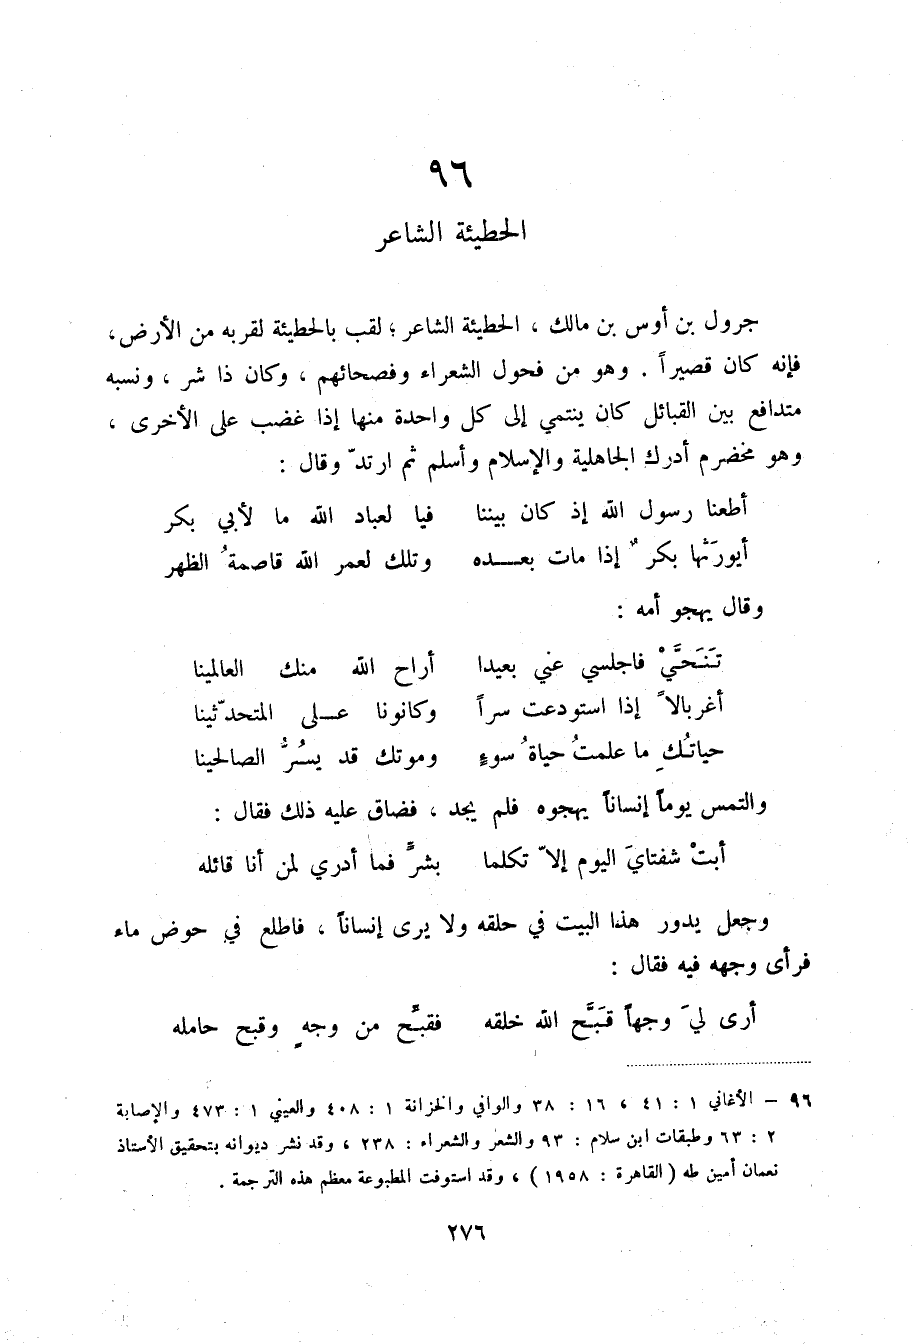 ٩٦
الحطيئة الشاعر
جرول بن أوس بن مالك ، الحطيئة الشاعر ؛ لقب بالحطيئة لقربه من الأرض،
فإنه كان قصيراً . وهو من فحول الشعراء وفصحائهم ، وكان ذا شر ، ونسبه
متدافع بين القبائل كان ينتمي إلى كل واحدة منها إذا غضب على الأخرى ،
وهو مخضرم أدرك الجاهلية والإسلام وأسلم ثم ارتدّ وقال :
أطعنا رسول الله إذ كان بيننا فيا لعباد الله ما لأبي بكر
أيورَثها بكرٌ إذا مات بعـــده وتلك لعمر الله قاصمةُ الظهر
وقال يهجو أمه :
تَنَحَّيْ فاجلسي عني بعيدا أراح الله منك العالمينا
أغربالاً إذا استودعت سراً وكانونا عـلى المتحدّثينا
حياتُكِ ما علمتُ حياةُ سوءٍ وموتك قد يسُرُّ الصالحينا
والتمس يوماً إنساناً يهجوه فلم يجد ، فضاق عليه ذلك فقال :
أبتْ شفتايَ اليوم إلاّ تكلما بشرٍّ فما أدري لمن أنا قائله
وجعل يدور هذا البيت في حلقه ولا يرى إنساناً ، فاطلع في حوض ماء
فرأى وجهه فيه فقال :
أرى ليَ وجهاً قَبَّح الله خلقه فقبِّح من وجهٍ وقبح حامله
٩٦ – الأغاني ١ : ٤١ ، ١٦ : ٣٨ والوافي والخزانة ١ : ٤٠٨ والعيني ١ : ٤٧٣ والإصابة
٢ : ٦٣ وطبقات ابن سلام : ٩٣ والشعر والشعراء : ٢٣٨ ، وقد نشر ديوانه بتحقيق الأستاذ
نعمان أمين طه ( القاهرة : ١٩٥٨ ) ، وقد استوفت المطبوعة معظم هذه الترجمة .
٢٧٦